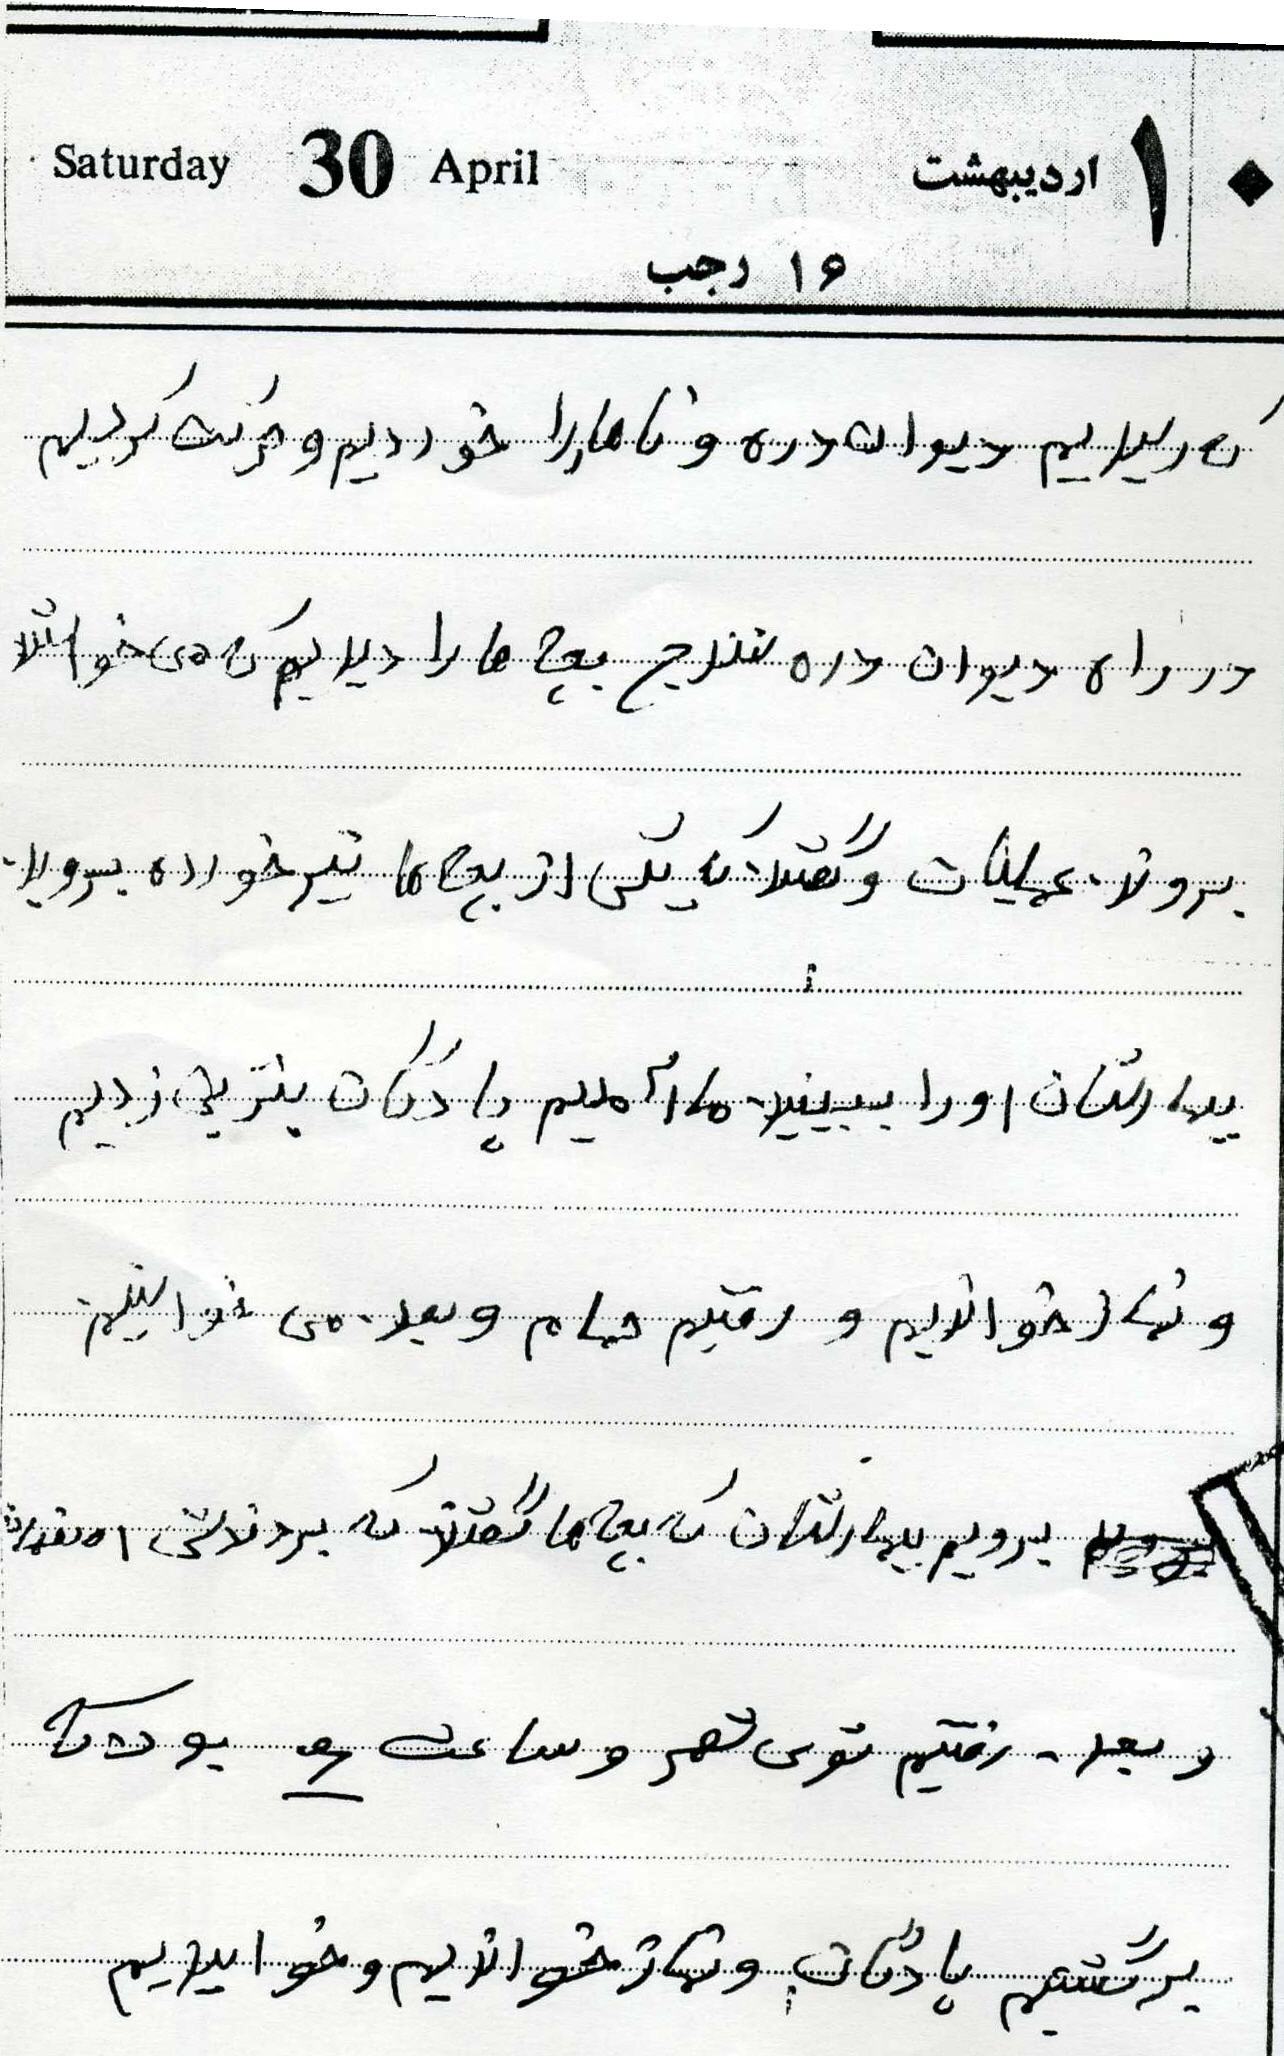 Saturday 30 April ۱۰ اردیبهشت
۱۶ رجب
که رسیدیم دیواندره و ناهار را خوردیم و حرکت کردیم
در راه دیوان دره سنندج بچه ها را دیدیم که می خواستند
بروند عملیات و گفتند که یکی از بچه ها تیر خورده بروید
بیمارستان او را ببینید ما آمدیم پادگان بنزین زدیم
و نماز خواندیم و رفتیم حمام و بعد می خواستیم
برویم بیمارستان که بچه ها گفتند که بردنش
و بعد رفتیم توی شهر و ساعت ۶ بود که
برگشتیم پادگان و نماز خواندیم و خوابیدیم